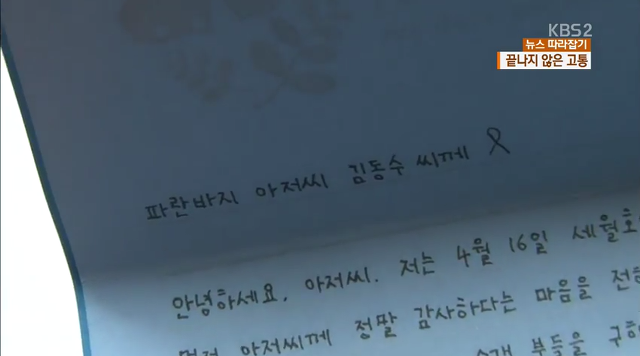 KBS2
뉴스 따라잡기
끝나지 않은 고통
파란바지 아저씨 김동수 씨께
안녕하세요, 아저씨. 저는 4월 16일 세월호
먼저 아저씨께 정말 감사하다는 마음을 전하
부둥을 구